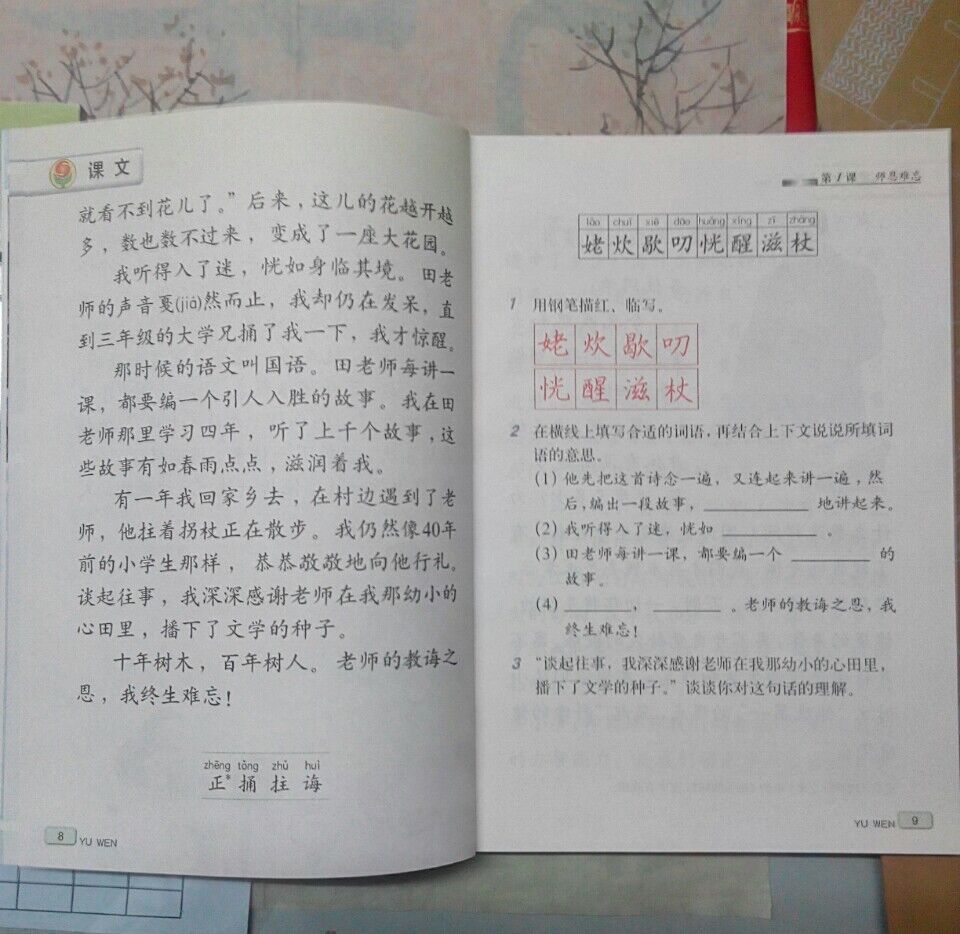 课文
就看不到花儿了。”后来，这儿的花越开越
多，数也数不过来，变成了一座大花园。
我听得入了迷，恍如身临其境。田老
师的声音戛(jiá)然而止，我却仍在发呆，直
到三年级的大学兄捅了我一下，我才惊醒。
那时候的语文叫国语。田老师每讲一
课，都要编一个引人入胜的故事。我在田
老师那里学习四年，听了上千个故事，这
些故事有如春雨点点，滋润着我。
有一年我回家乡去，在村边遇到了老
师，他拄着拐杖正在散步。我仍然像40年
前的小学生那样，恭恭敬敬地向他行礼。
谈起往事，我深深感谢老师在我那幼小的
心田里，播下了文学的种子。
十年树木，百年树人。老师的教诲之
恩，我终生难忘！
zhēng tǒng zhǔ huì
正* 捅 拄 诲
8 YU WEN
第1课 师恩难忘
lǎo chuī xiē dāo huǎng xǐng zī zhàng
姥 炊 歇 叨 恍 醒 滋 杖
1 用钢笔描红、临写。
姥 炊 歇 叨
恍 醒 滋 杖
2 在横线上填写合适的词语，再结合上下文说说所填词
语的意思。
(1) 他先把这首诗念一遍，又连起来讲一遍，然
后，编出一段故事，__________ 地讲起来。
(2) 我听得入了迷，恍如 __________ 。
(3) 田老师每讲一课，都要编一个 ________ 的
故事。
(4) _______，_______ 。老师的教诲之恩，我
终生难忘！
3 “谈起往事，我深深感谢老师在我那幼小的心田里，
播下了文学的种子。”谈谈你对这句话的理解。
YU WEN 9